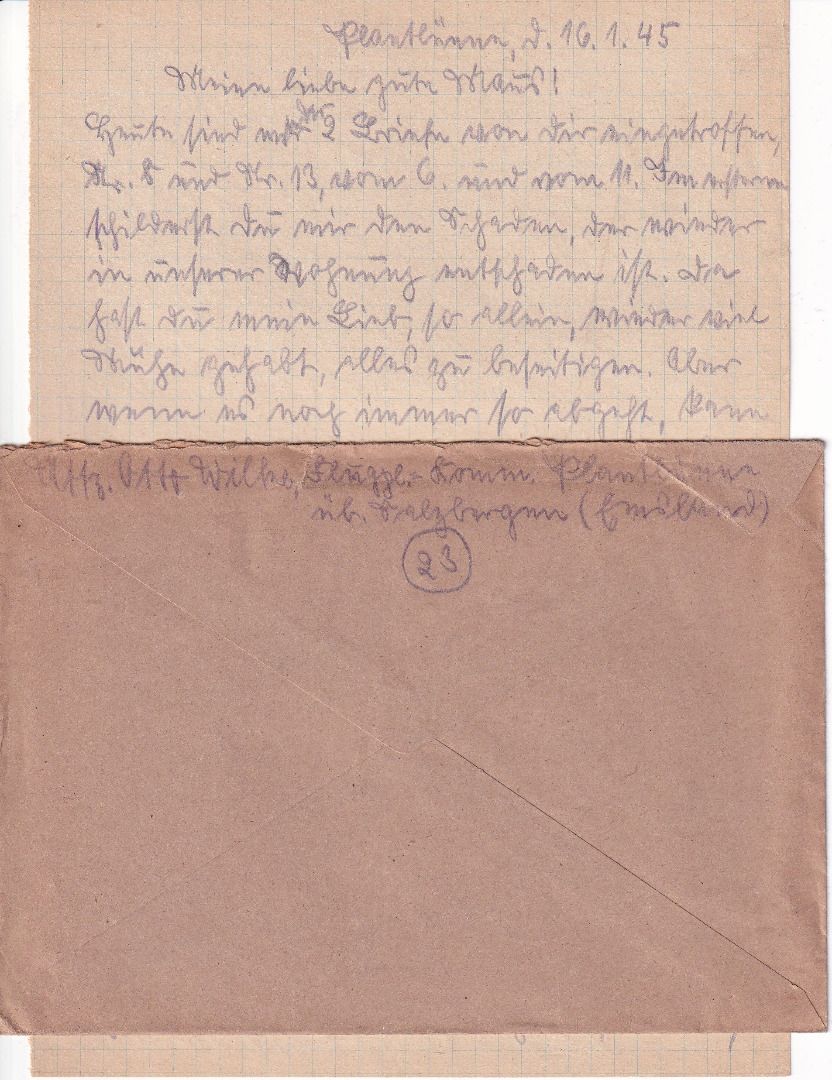 Plantlünne, d. 16.1.45
Meine liebe gute Maus!
Heute sind mir 2 Briefe von dir eingetroffen,
Nr. 8 und Nr. 13, vom 6. und vom 11. Im ersteren
schilderst du mir den Schaden, der wieder
in unserer Wohnung entschaden ist. Da
hast du mein Lieb, so allein, wieder viel
Mühe gehabt, alles zu beseitigen. Aber
wenn es noch immer so abgeht, kann
Uffz. Otto Wilke, Flugpl.-Komm. Plantlünne
üb. Salzbergen (Emsland)
23